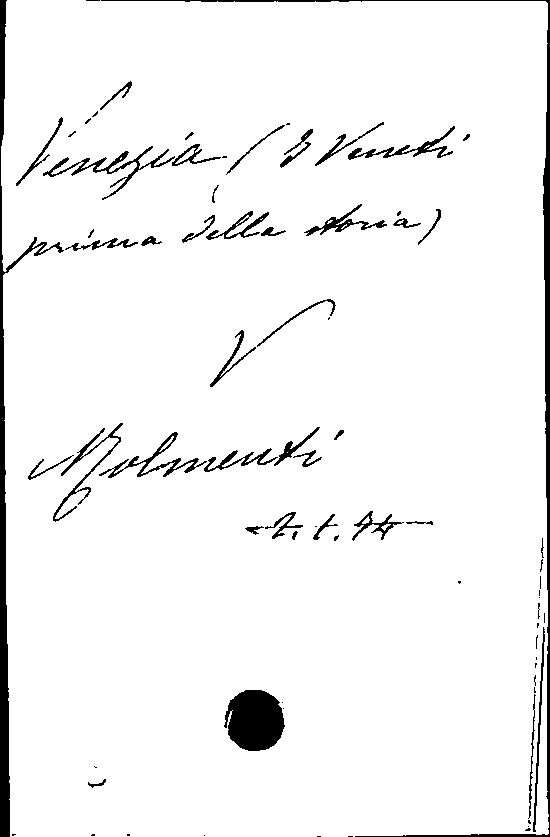 Venezia (I Veneti
prima della storia)
V
Molmenti